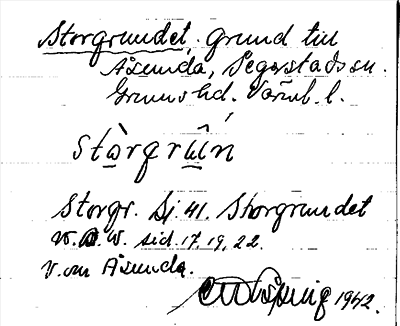 Storgrundet, grund till
Åsunda, Segerstads sn.
Grums hd. Värml. l.
stòrgrûn
Storgr. Sj. 41. Storgrundet
sid. 17, 19, 22.
v. om Åsunda.
1942.